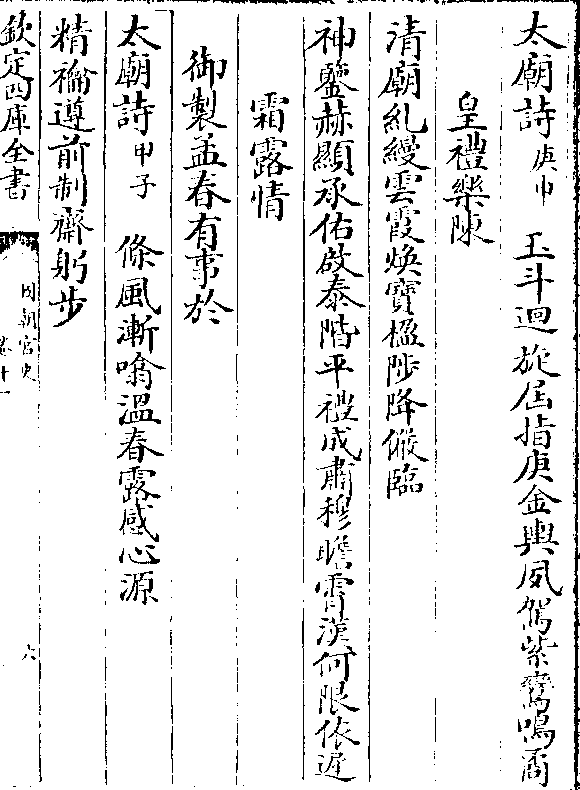 太廟詩庚申　玉斗迴旋屆指庚金輿夙駕紫鸞鳴裔
皇禮樂陳
清廟糺縵雲霞煥寶楹陟降儼臨
神鑒赫顯承佑啟泰階平禮成肅穆瞻霄漢何限依遲
霜露情
御製孟春有事於
太廟詩甲子　條風漸噏溫春露感心源
精禴遵前制齋躬步
欽定四庫全書
國朝宮史
卷十一
六